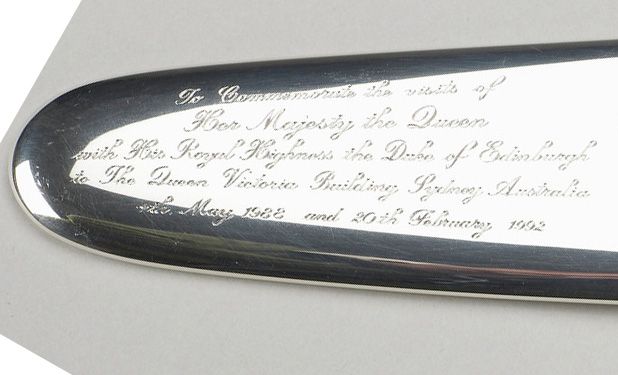 To Commemorate the visits of
Her Majesty the Queen
with His Royal Highness the Duke of Edinburgh
to The Queen Victoria Building Sydney Australia
4th May 1988 and 20th February 1992